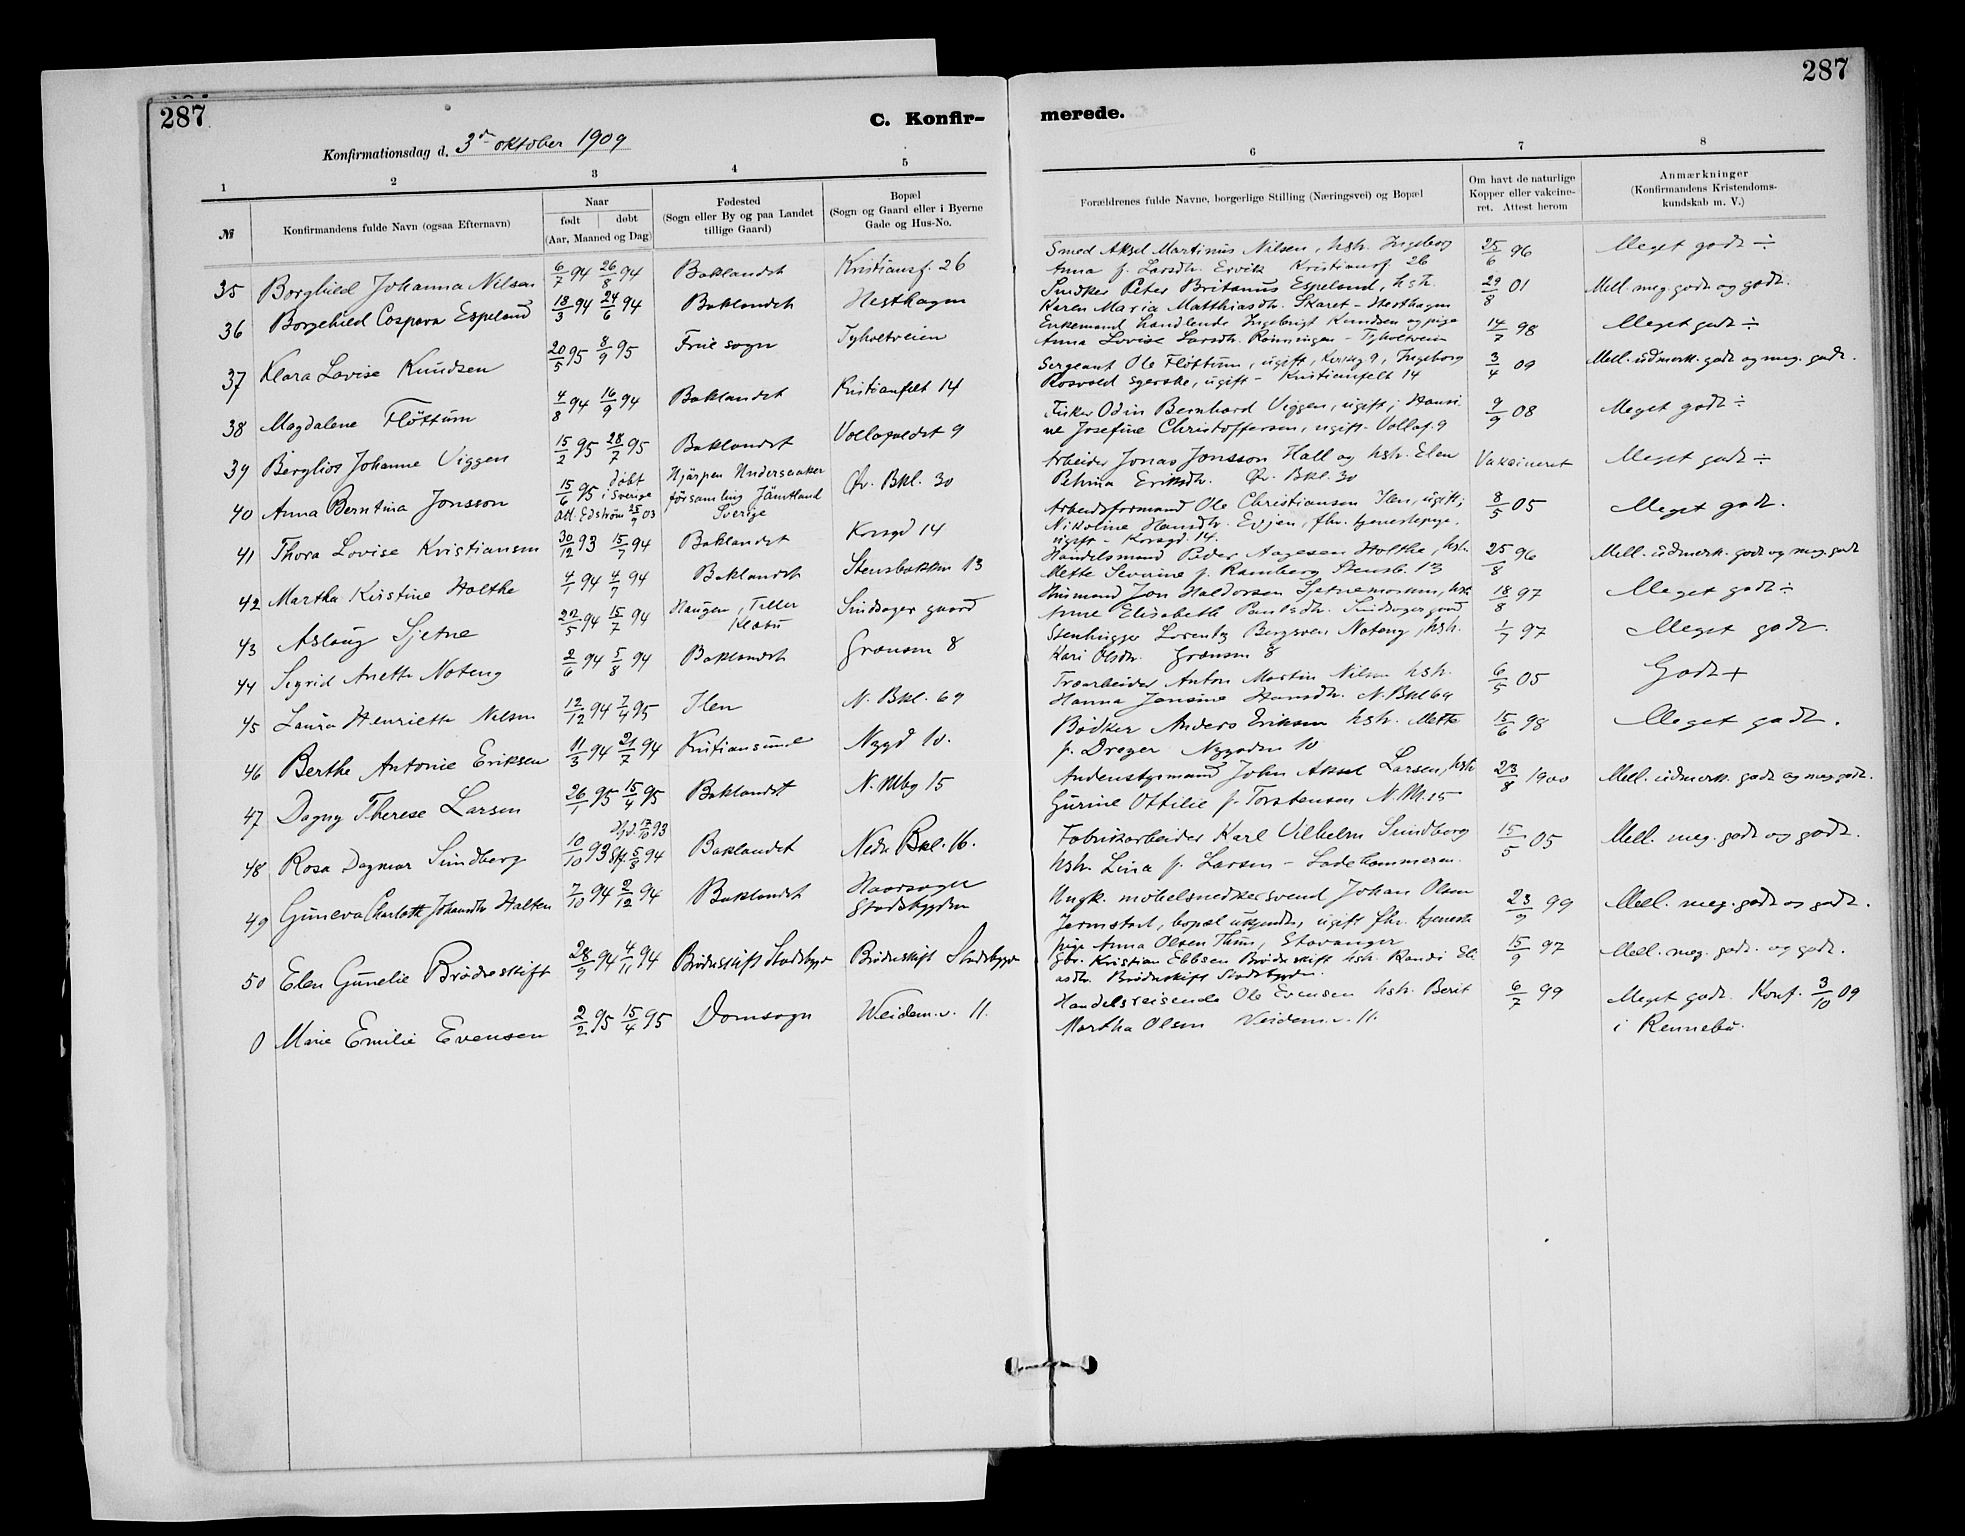 287
C. Konfir-
merede.
287
Konfirmationsdag d. 3die oktober 1909
1 2 3 4 5 6 7 8
№ Konfirmandens fulde Navn (ogsaa Efternavn) Naar født døbt (Aar, Maaned og Dag) Fødested (Sogn eller By og paa Landet tillige Gaard) Bopæl (Sogn og Gaard eller i Byerne Gade og Hus-No. Forældrenes fulde Navne, borgerlige Stilling (Næringsvei) og Bopæl Om havt de naturlige Kopper eller vakcineret. Attest herom Anmærkninger (Konfirmandens Kristendomskundskab m. V.)
35 Borghild Johanna Nilsen 6/7 94 26/8 94 Baklandet Kristiansf. 26 Smed Aksel Martinus Nilsen, hsh. Ingeborg 25/6 96 Meget godt ÷
Anna f. Larsdtr. Ervik Kristiansf 26
36 Borghild Caspara Espeland 18/3 94 24/6 94 Baklandet Hesthagen Snedker Peter Britanus Espeland, hsh. 29/8 01 Mell. meg. godt og godt.
Karen Maria Matthiasdtr. Skaret - Hesthagen
37 Klara Lovise Knudsen 20/5 95 8/9 95 Frue sogn Tyholtveien Enkemand handlende Ingebrigt Knudsen og pige 14/7 98 Meget godt ÷
Anna Lovise Larsdtr. Rønningen - Tyholtveien
38 Magdalene Fløttum 4/8 94 16/9 94 Baklandet Kristianfelt 14 Sergeant Ole Fløttum, ugift, Korsg 9, Ingeborg 3/4 09 Mell. udmerk. godt og meg. godt.
Rosvold syerske, ugift - Kristianfelt 14
39 Bergliot Johanne Viggen 15/2 95 28/7 95 Baklandet Vollagaldet 9 Fisker Odin Bernhard Viggen, ugift; Hansi- 9/9 08 Meget godt ÷
ne Josefine Christoffersen, ugift - Vollaf. 9
40 Anna Berntina Jonsson 15/6 95 døbt i Sverige Att. Edstrøm 25/9 03 Hjärpen Undersaaker församling Jämtland Sverige Øv. Bkl. 30 Arbeider Jonas Jonsson Hall og hsh. Elen Vakcineret Meget godt ÷
Petrina Eriksdtr. Øv. Bkl. 30
41 Thora Lovise Kristiansen 30/12 93 15/7 94 Baklandet Korsgd 14 Arbeidsformand Ole Christiansen Ilen, ugift; 8/5 05 Meget godt.
Nikoline Hansdtr. Evjen, fhv. tjenestepige,
ugift - Korsgd. 14.
42 Martha Kirstine Holthe 4/1 94 4/7 94 Baklandet Stensbakken 13 Handelsmand Peder Aagesen Holthe, hsh. 25/8 96 Mell. udmerk. godt og meg. godt
Mette Sevrine f. Ramberg Stensb. 13
43 Aslaug Sjetne 22/5 94 15/7 94 Haugen, Tiller Klæbu Sindsager gaard Husmand Jon Haldorsen Sjetnemarken, hsh. 18/8 97 Meget godt ÷
Anne Elisabeth Paulsdtr. Sindsager gaard
44 Sigrid Anette Noteng 2/6 94 5/8 94 Baklandet Grænsen 8 Stenhugger Lorentz Bergsven Noteng, hsh. 1/7 97 Meget godt.
Kari Olsdtr. Grænsen 8
45 Laura Henriette Nilsen 12/12 94 7/4 95 Ilen N. Bkl. 69 Træarbeider Anton Martin Nilsen hsh. 6/5 05 Godt +
Hanna Jensine Hansdtr. N. Bkl 69
46 Berthe Antonie Eriksen 11/3 94 21/7 94 Kristiansund Nygd 10. Bødker Anders Eriksen hsh. Mette 15/6 98 Meget godt.
f. Drager Nygaden 10
47 Dagny Therese Larsen 26/1 95 15/4 95 Baklandet N. Mbg 15 Andenstyrmand John Aksel Larsen, hsh 23/8 1900 Mell. udmerk. godt og meg. godt.
Gurine Ottilie f. Torstensen N. M. 15
48 Rosa Dagmar Sundberg 10/10 93 Hjd. 17/10 93 Stf. 5/8 94 Baklandet Nedr Bkl. 16. Fabrikarbeider Karl Vilhelm Sundberg 15/5 05 Mell. meg. godt og godt.
hsh. Lina f. Larsen - Ladehammeren.
49 Guneva Charlotte Johansdtr Halten 7/10 94 2/12 94 Baklandet Haarsager Stadsbygden Ungk. møbelsnedkersvend Johan Olsen 23/9 99 Mell. meg. godt og godt.
Jermstad, bopæl ukjendt, ugift fhv. tjeneste
pige Anna Olsen Thun, Stavanger
50 Elen Gunelie Brødreskift 28/9 94 4/11 94 Brødreskift Stadsbygd Brødreskift Stadsbygd Gbr. Kristian Ebbsen Brødreskift hsh. Randi Eli- 15/9 97 Mell. meg. godt. og godt.
asdtr. Brødreskift Stadsbygden.
0 Marie Emilie Evensen 2/2 95 15/4 95 Domsogn Weidem.v. 11. Handelsreisende Ole Evensen hsh. Berit 6/7 99 Meget godt. Konf. 3/10 09
Martha Olsen Weidem.v. 11. i Rennebu.